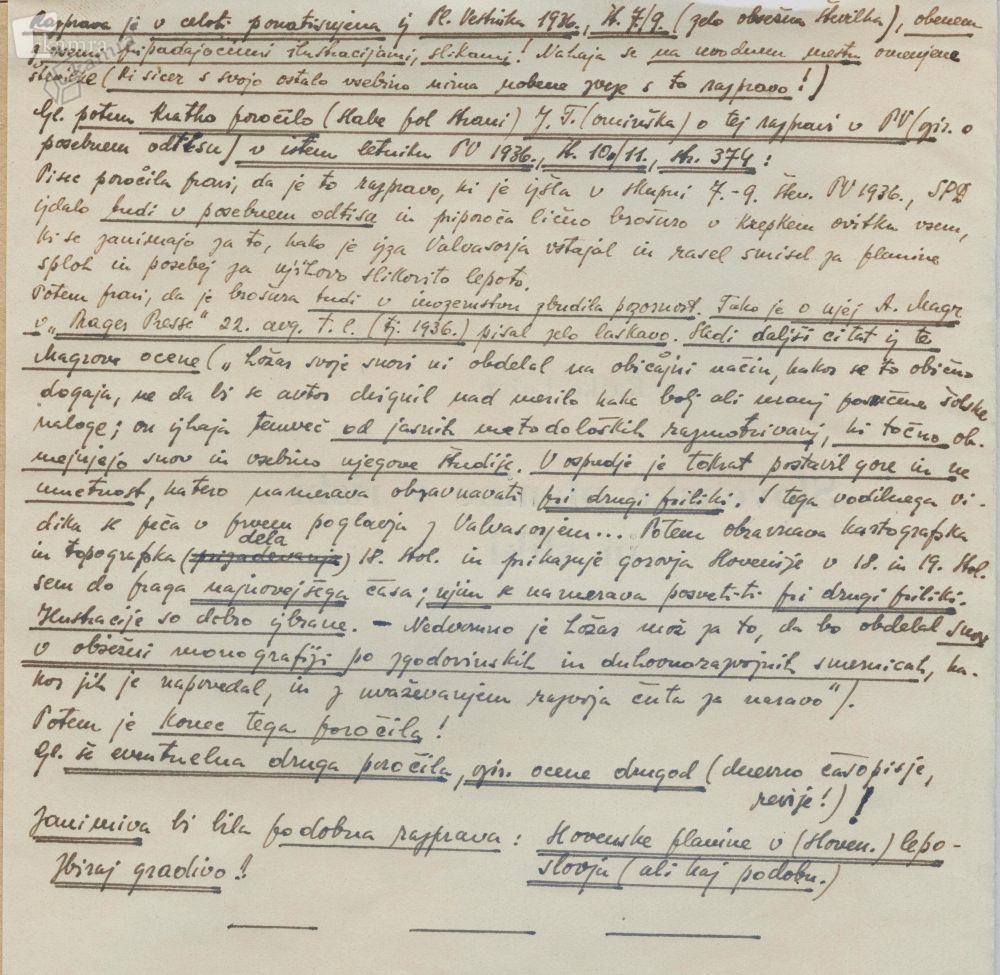 Razprava je v celoti ponatisnjena iz Pl. Vestnika 1936., št. 7/9. (zelo obsežna številka), obenem
z vsemi pripadajočimi ilustracijami, slikami! Nahaja se na uvodnem mestu omenjene
številke (ki sicer s svojo ostalo vsebino nima nobene zveze s to razpravo!)
Gl. potem kratko poročilo (slabe pol strani) J. T.(ominška) o tej razpravi v PV (ozir. o
posebnem odtisu) v istem letniku PV 1936., št. 10/11., str. 374:
Pisec poročila pravi, da je to razpravo, ki je izšla v skupni 7.-9. štev. PV 1936., SPD
izdalo tudi v posebnem odtisu in priporoča lično brošuro v krepkem ovitku vsem,
ki se zanimajo za to, kako je izza Valvasorja vstajal in rasel smisel za planine
sploh in posebej za njihovo slikovito lepoto.
Potem pravi, da je brošura tudi v inozemstvu zbudila pozornost. Tako je o njej A. Magr
v „Prager Presse" 22. avg. t. l. (tj. 1936.) pisal zelo laskavo. Sledi daljši citat iz te
Magrove ocene („Ložar svoje snovi ni obdelal na običajni način, kakor se to obično
dogaja, ne da bi se avtor dvignil nad merilo kake bolj ali manj posrečene šolske
naloge; on izhaja temveč od jasnih metodoloških razmotrivanj, ki točno ob-
mejujejo snov in vsebino njegove študije. V ospredje je tokrat postavil gore in ne
umetnost, katero namerava obravnavati pri drugi priliki. S tega vodilnega vi-
dika se peča v prvem poglavju z Valvasorjem... Potem obravnava kartografska
dela
in topografska (prizadevanja) 18. stol. in prikazuje gorovja Slovenije v 18. in 19. stol.
sem do praga najnovejšega časa; njim se namerava posvetiti pri drugi priliki.
Ilustracije so dobro izbrane. – Nedvomno je Ložar mož za to, da bo obdelal snov
v obsežni monografiji po zgodovinskih in duhovnorazvojnih smernicah, ka-
kor jih je napovedal, in z uvaževanjem razvoja čuta za naravo").
Potem je konec tega poročila!
Gl. še eventuelna druga poročila, ozir. ocene drugod (dnevno časopisje,
revije!)!
Zanimiva bi bila podobna razprava: Slovenske planine v (sloven.) lepo-
Zbiraj gradivo!! slovju (ali kaj podobn.)